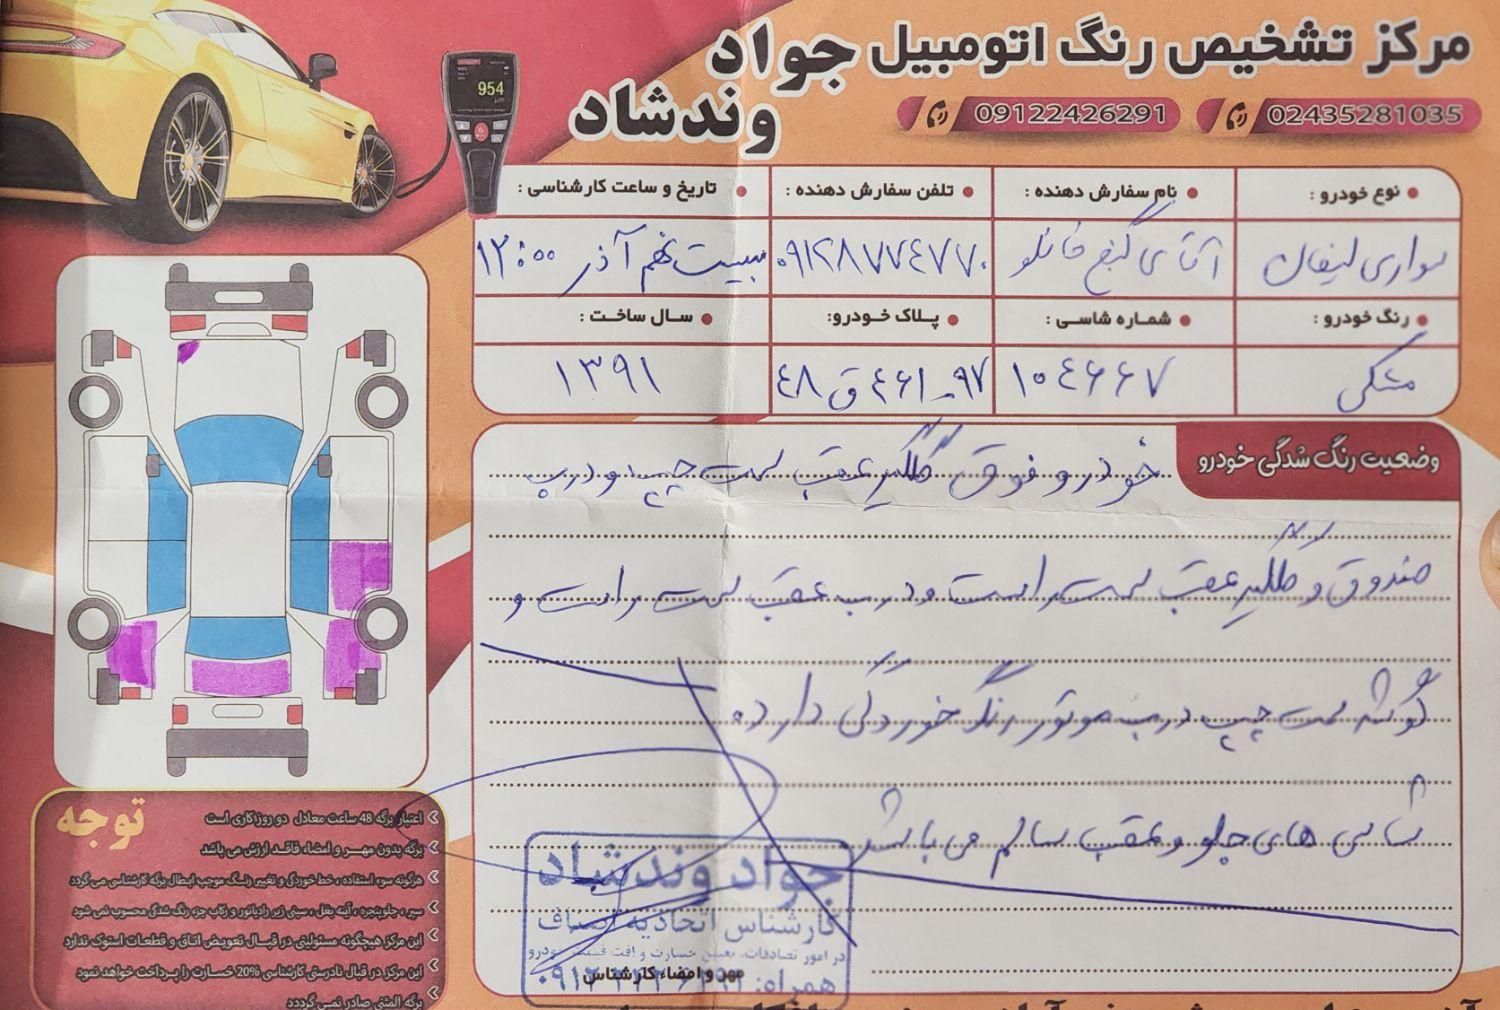 مرکز تشخیص رنگ اتومبیل جواد وندشاد
02435281035
09122426291
954
نوع خودرو :
نام سفارش دهنده :
تلفن سفارش دهنده :
تاریخ و ساعت کارشناسی :
سواری لیفان
آقای گنج خانلو
۰۹۱۲۸۷۷۴۷۷۰
بیست نهم آذر ۱۲:۰۰
رنگ خودرو :
شماره شاسی :
پلاک خودرو:
سال ساخت :
مشکی
۱۰۴۶۶۷
۹۷-۴۶۱ ق ۴۸
۱۳۹۱
وضعیت رنگ شدگی خودرو
خودرو فوق گلگیر عقب سمت چپ و درب
صندوق و گلگیر عقب سمت راست و درب عقب سمت راست و
گوشه سمت چپ درب موتور رنگ خوردگی دارد
شاسی های جلو و عقب سالم می باشد
توجه
اعتبار برگه 48 ساعت معادل دو روز کاری است
برگه بدون مهر و امضاء فاقد ارزش می باشد
هرگونه سوء استفاده ، خط خوردگی و تغییر رنگ موجب ابطال برگه کارشناسی می گردد
سپر ، جلوپنجره ، آینه بغل ، سینی زیر رادیاتور و رکاب جزء رنگ شدگی محسوب نمی شود
این مرکز هیچگونه مسئولیتی در قبال تعویض اتاق و قطعات استوک ندارد
این مرکز در قبال نادرستی کارشناسی 20% خسارت را پرداخت خواهد نمود
برگه المثنی صادر نمی گردد
جواد وندشاد
کارشناس اتحادیه اصناف
در امور تصادفات، تعیین خسارت و افت قیمت خودرو
مهر و امضاء کارشناس
همراه: